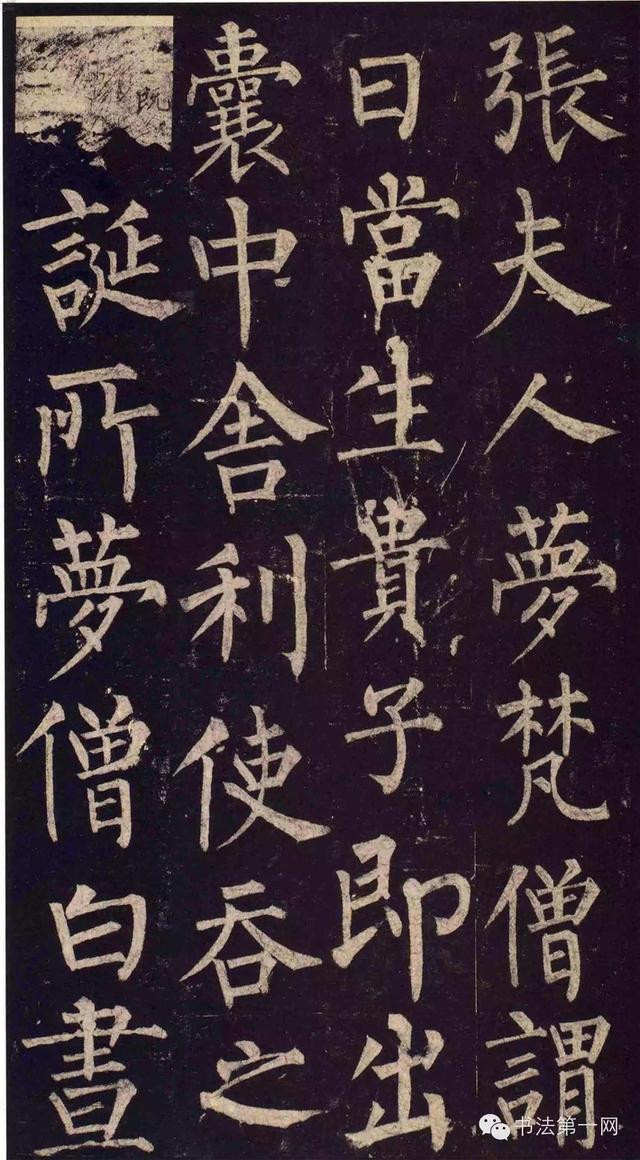 張夫人夢梵僧謂
曰當生貴子即出
囊中舍利使吞之
既
誕所夢僧白晝
书法第一网